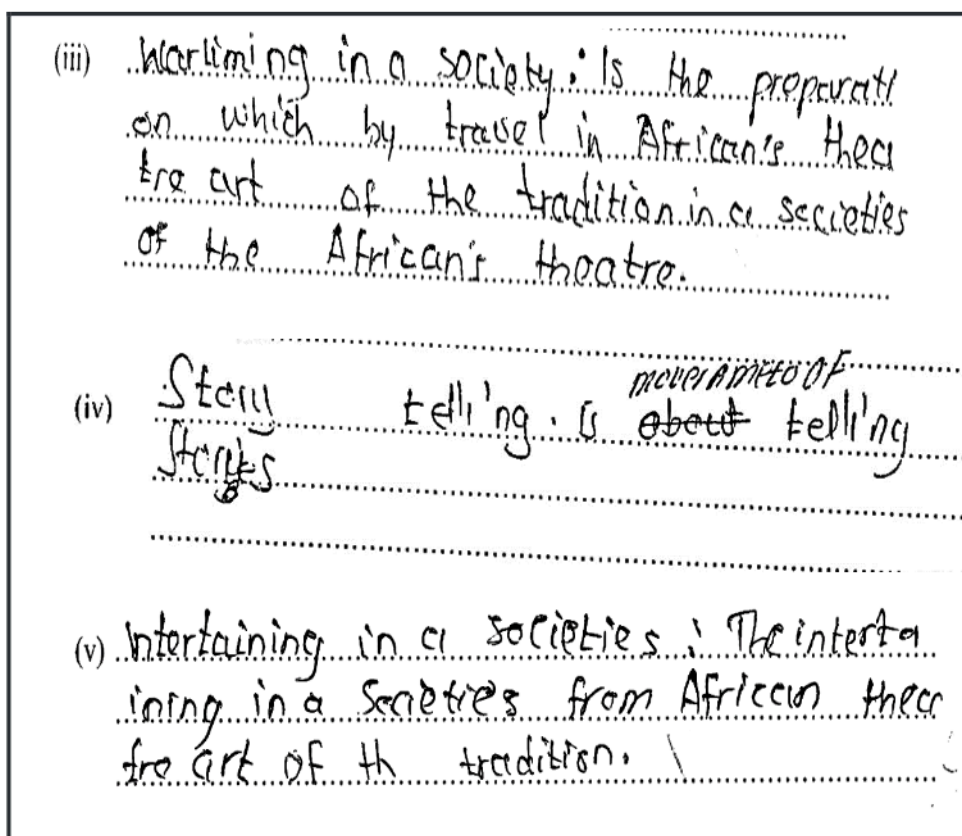 (iii) Warliming in a society: Is the preparati
on which by travel in African's thea
tre art of the tradition in a societies
of the African's theatre.
(iv) Story telling. is about telling
Storys
(v) Intertaining in a societies: The interta
ining in a Societies from African thea
tre art of th tradition.